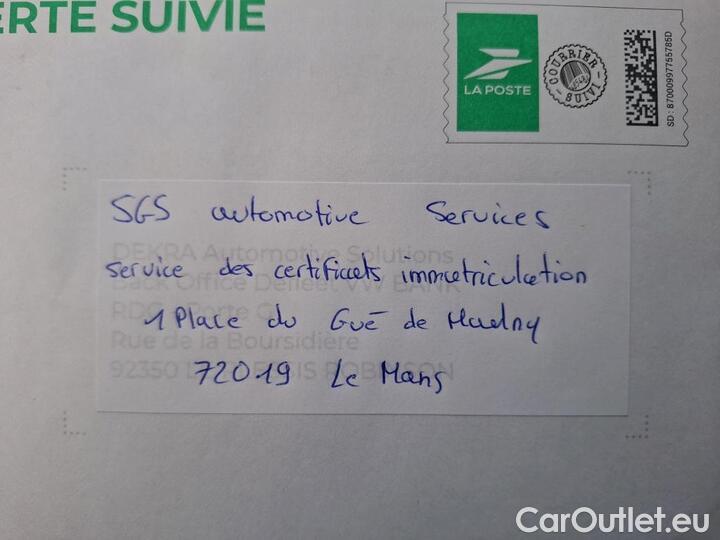 ERTE SUIVIE
LA POSTE
COURRIER SUIVI
SD : 87000997755785D
SGS automotive Services
DEKRA Automotive Solutions
service des certificats immatriculation
Back Office Defleet VW BANK
1 Place du Gué de Maulny
Rue de la Boursidière
72019 Le Mans
92350 ROBINSON
CarOutlet.eu